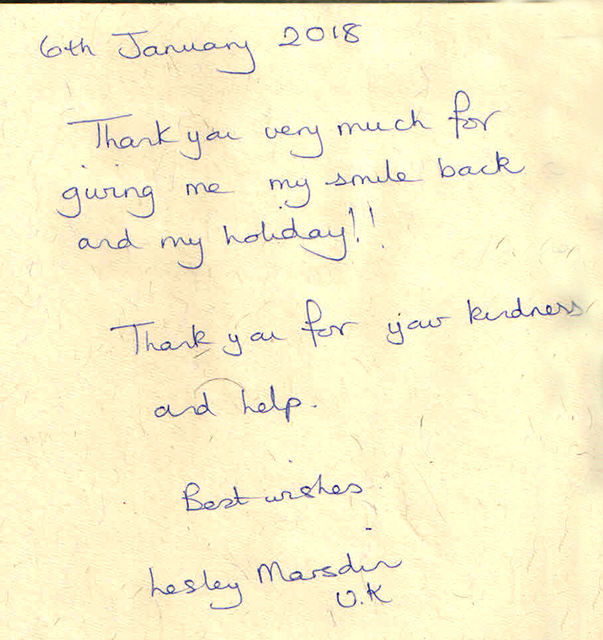 6th January 2018
Thank you very much for
giving me my smile back
and my holiday!!
Thank you for your kindness
and help.
Best wishes
Lesley Marsden
U.K